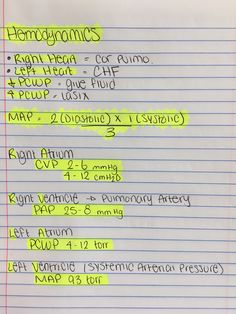 Hemodynamics
• Right Heart = Cor Pulmo.
• Left Heart = CHF
↓ PCWP = give fluid
↑ PCWP = Lasix
MAP = 2(Diastolic) x 1(Systolic)
3
Right Atrium
CVP 2-6 mmHg
4-12 cmH2O
Right Ventricle → Pulmonary Artery
PAP 25-8 mmHg
Left Atrium
PCWP 4-12 torr
Left Ventricle (Systemic Arterial Pressure)
MAP 93 torr